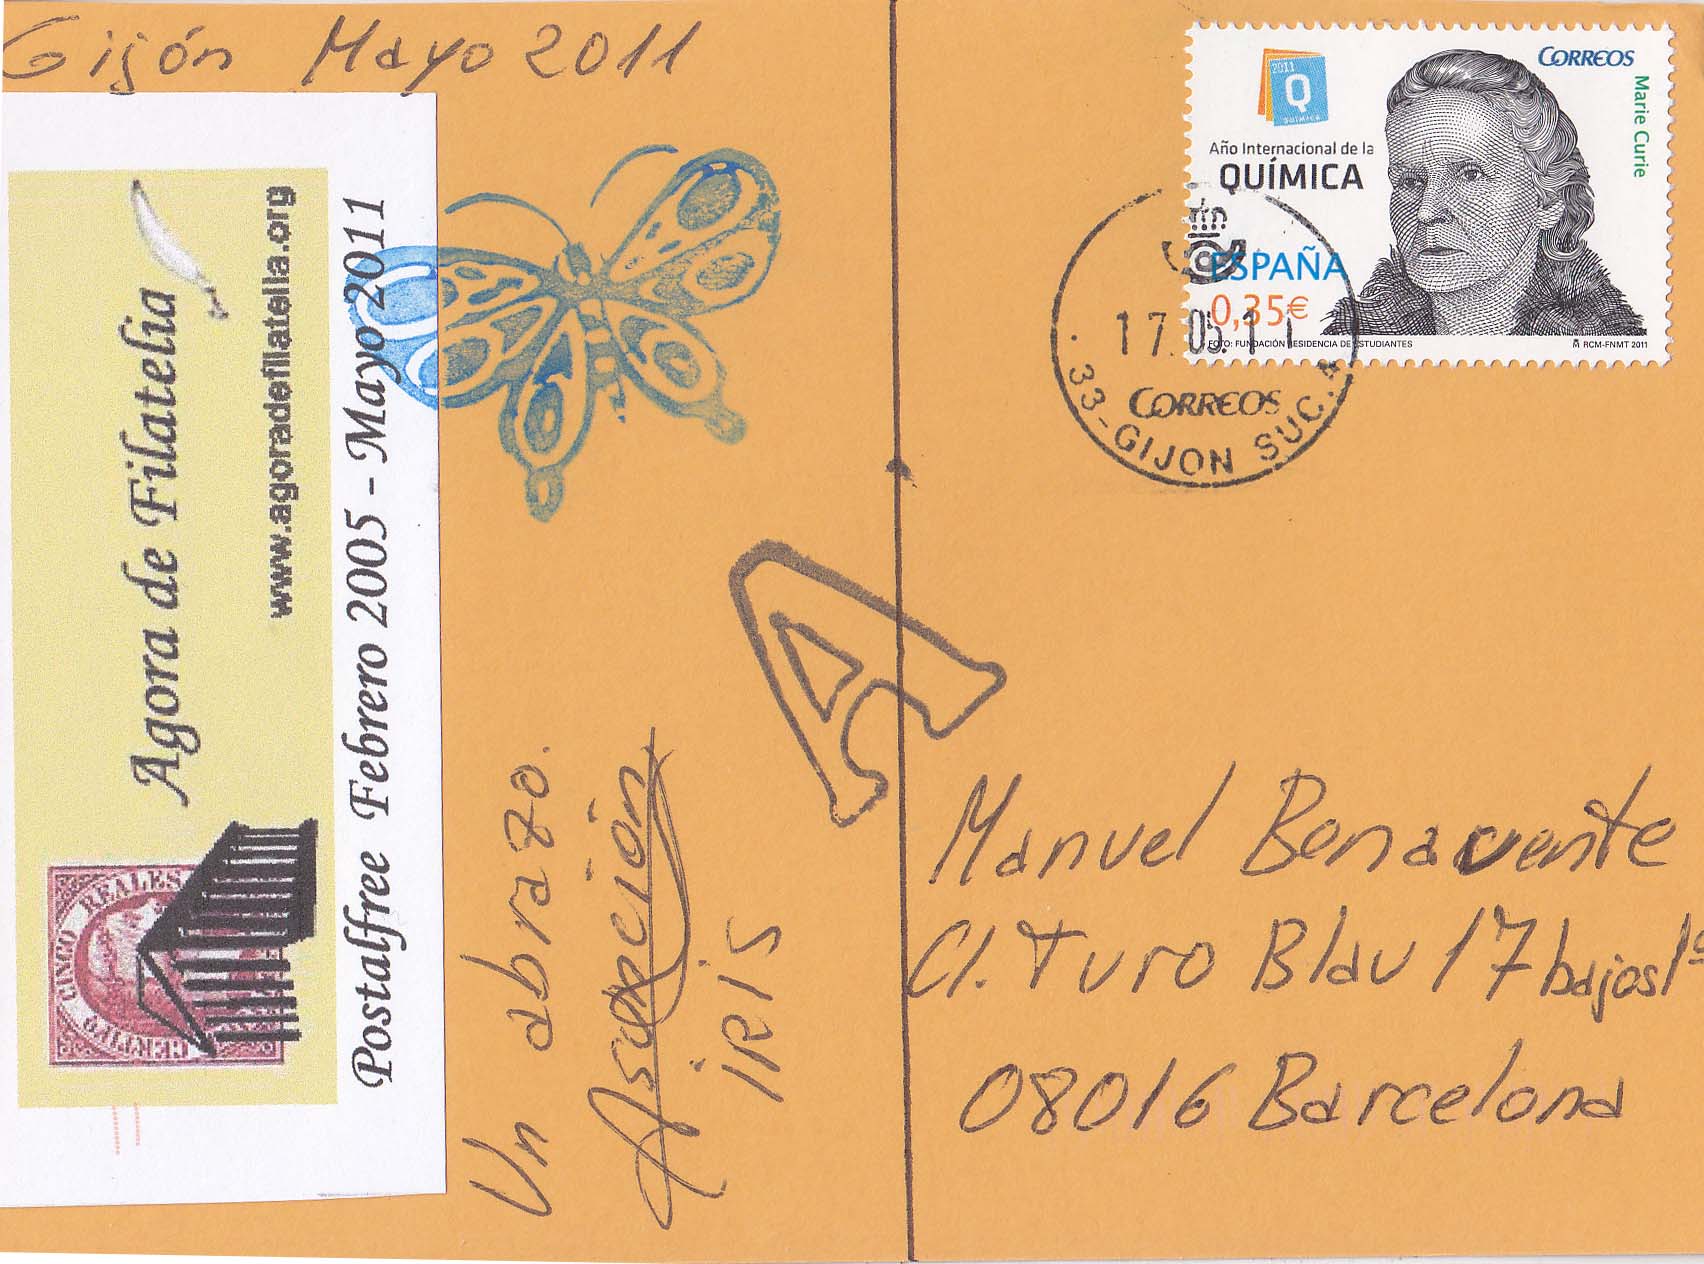 Gijón Mayo 2011
Agora de Filatelia
www.agoradefilatelia.org
Postalfree Febrero 2005 - Mayo 2011
CINCO REALES
CERTIFDO
Un abrazo.
Asunción
iRiS
A
2011
Q
QUÍMICA
Año Internacional de la
QUÍMICA
CORREOS
Marie Curie
ESPAÑA
0,35€
FOTO: FUNDACIÓN RESIDENCIA DE ESTUDIANTES
RCM-FNMT 2011
17.05.11
CORREOS
33-GIJON SUC.4
Manuel Benavente
Cl. Turo Blau 17 bajos 1º
08016 Barcelona